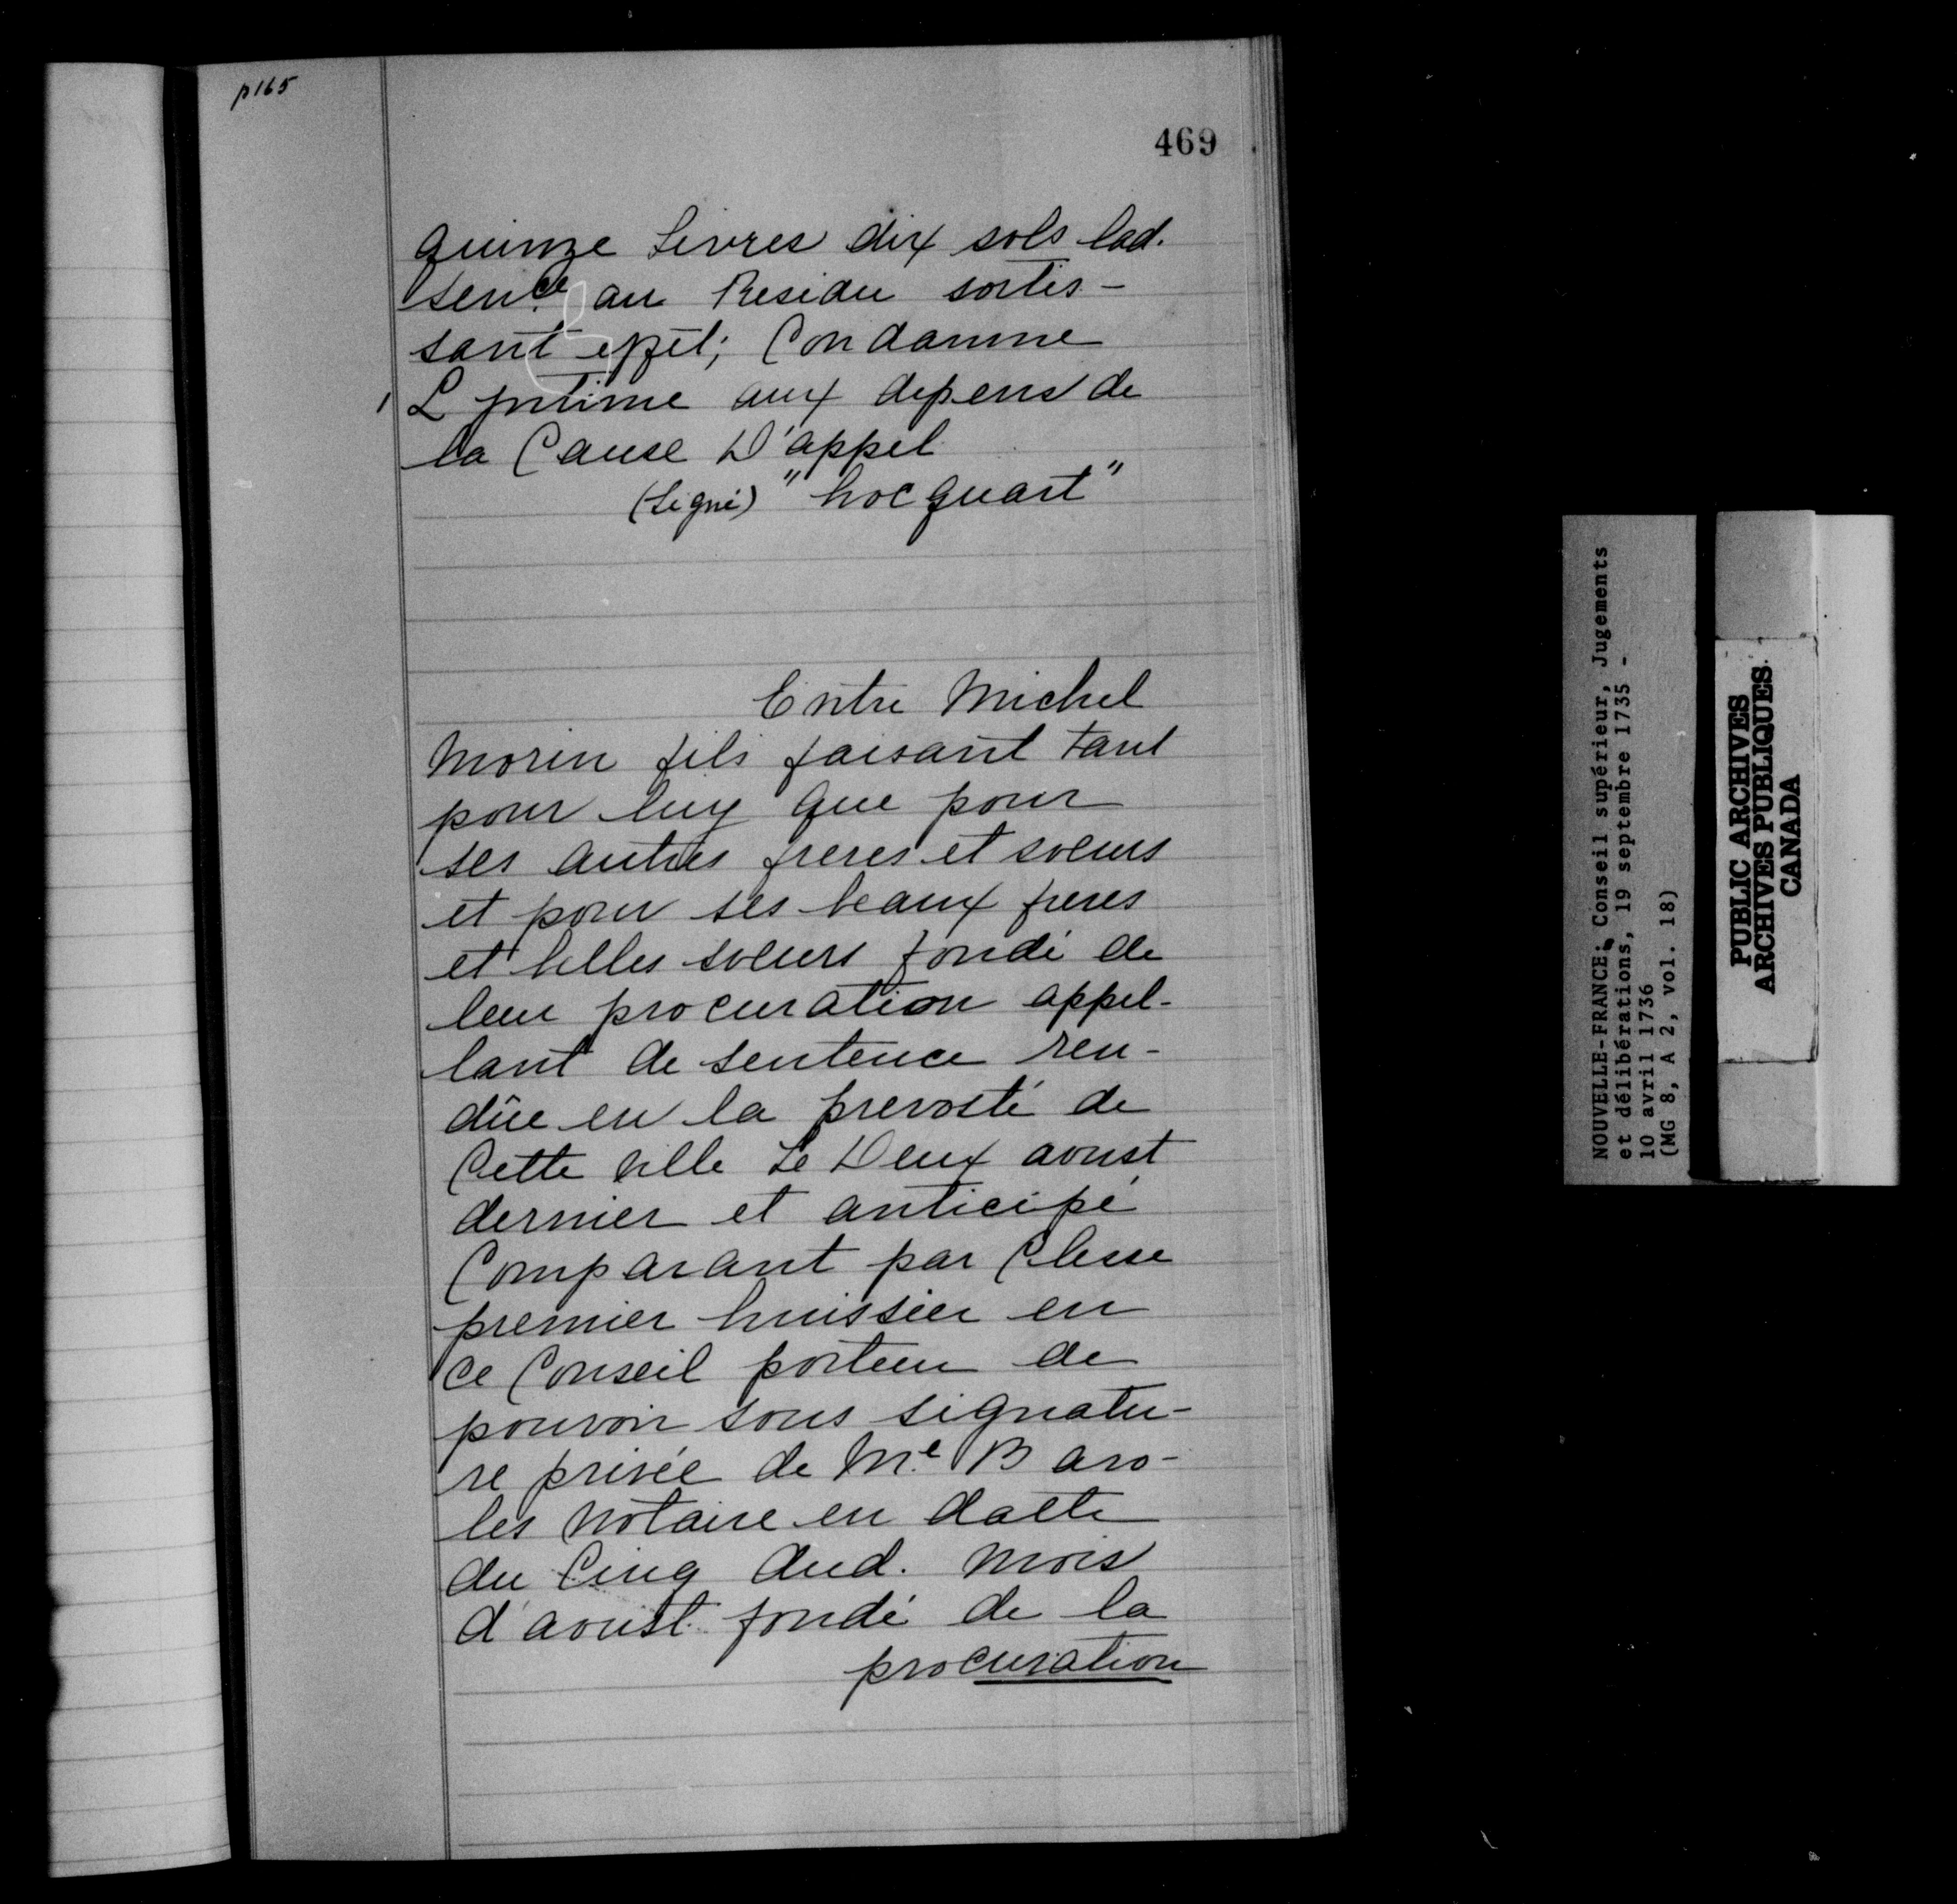 p 165
469
quinze Livres dix sols lad.
senc.e au Residu sortis-
sant effet; Condamne
L'intime aux depens de
la Cause D'appel
(Signé) "hocquart"
Entre Michel
Morin fils faisant tant
pour luy que pour
ses autres freres et soeurs
et pour ses beaux freres
et belles soeurs fondé de
leur procuration appel-
lant de sentence ren-
düe en la prevosté de
Cette ville Le Deux aoust
dernier et anticipé
Comparant par Clesse
premier huissier en
ce Conseil porteur de
pouvoir sous signatu-
re privée de Me. Baro-
les Notaire en datte
du Cinq dud. mois
d'aoust fondé de la
procuration
NOUVELLE-FRANCE: Conseil supérieur, Jugements
et délibérations, 19 septembre 1735 -
10 avril 1736
(MG 8, A 2, vol. 18)
PUBLIC ARCHIVES
ARCHIVES PUBLIQUES
CANADA